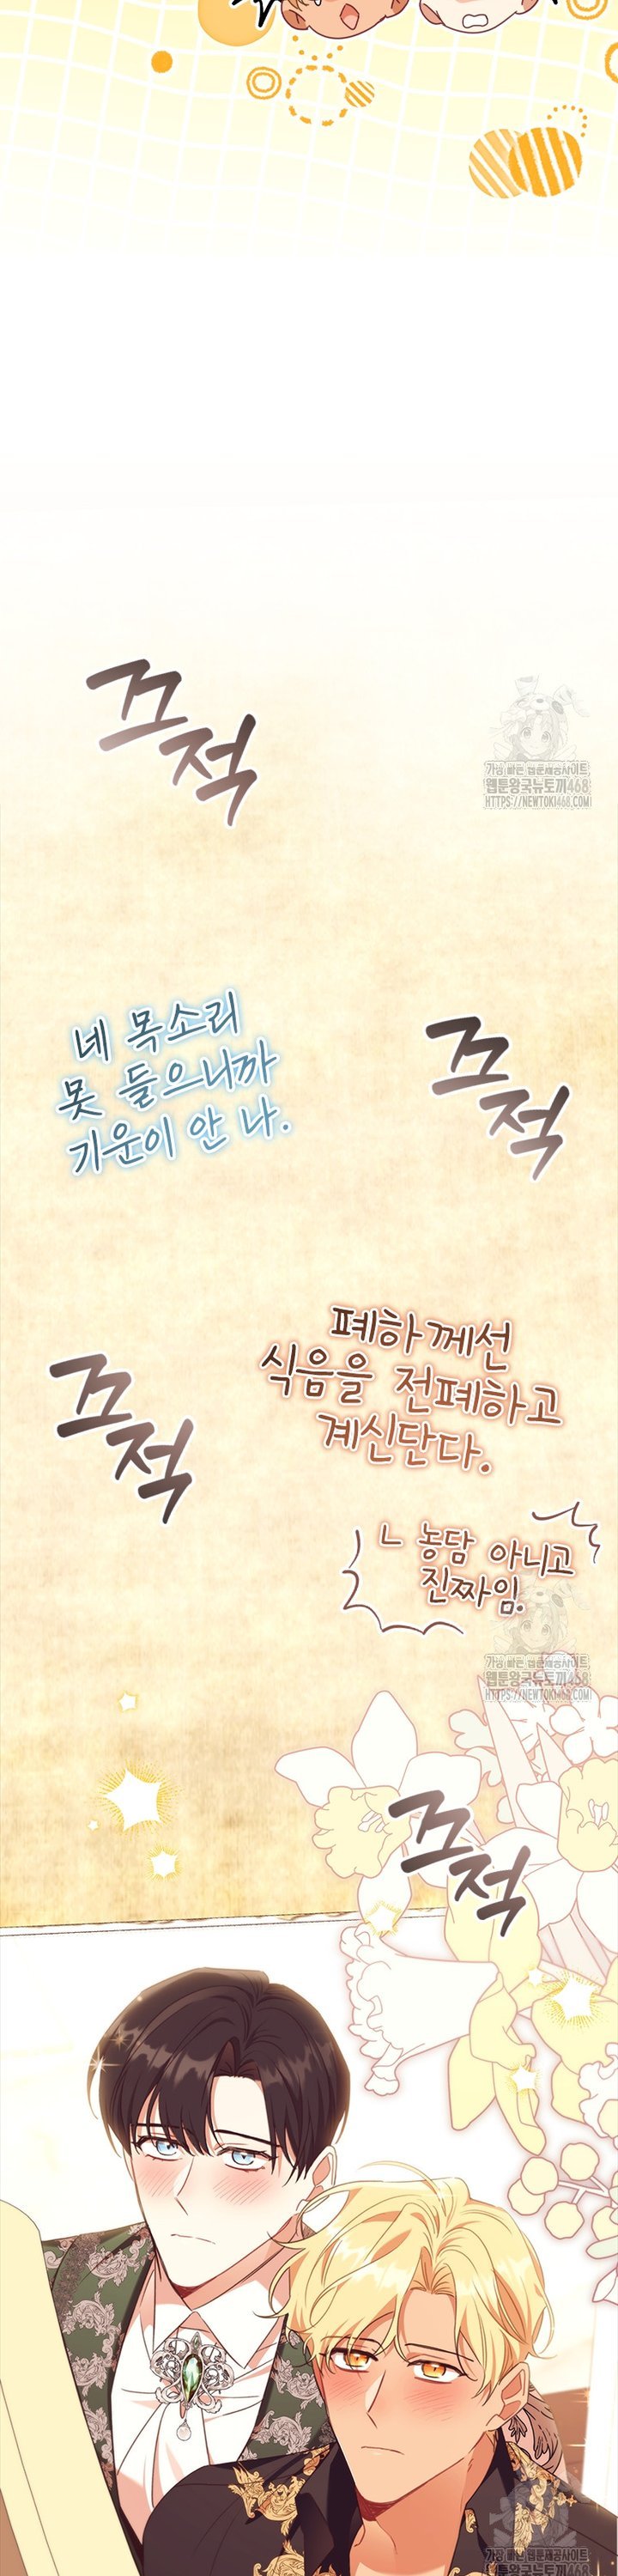 끄적
가장 빠른 웹툰제공사이트,
웹툰왕국뉴토끼468
HTTPS://NEWTOKI468.COM/
네 목소리
못 들으니까
기운이 안 나.
끄적
폐하께선
식음을 전폐하고
계신단다.
끄적
ㄴ 농담 아니고
진짜임.
가장 빠른 웹툰제공사이트,
웹툰왕국뉴토끼468
HTTPS://NEWTOKI468.COM/
끄적
가장 빠른 웹툰제공사이트,